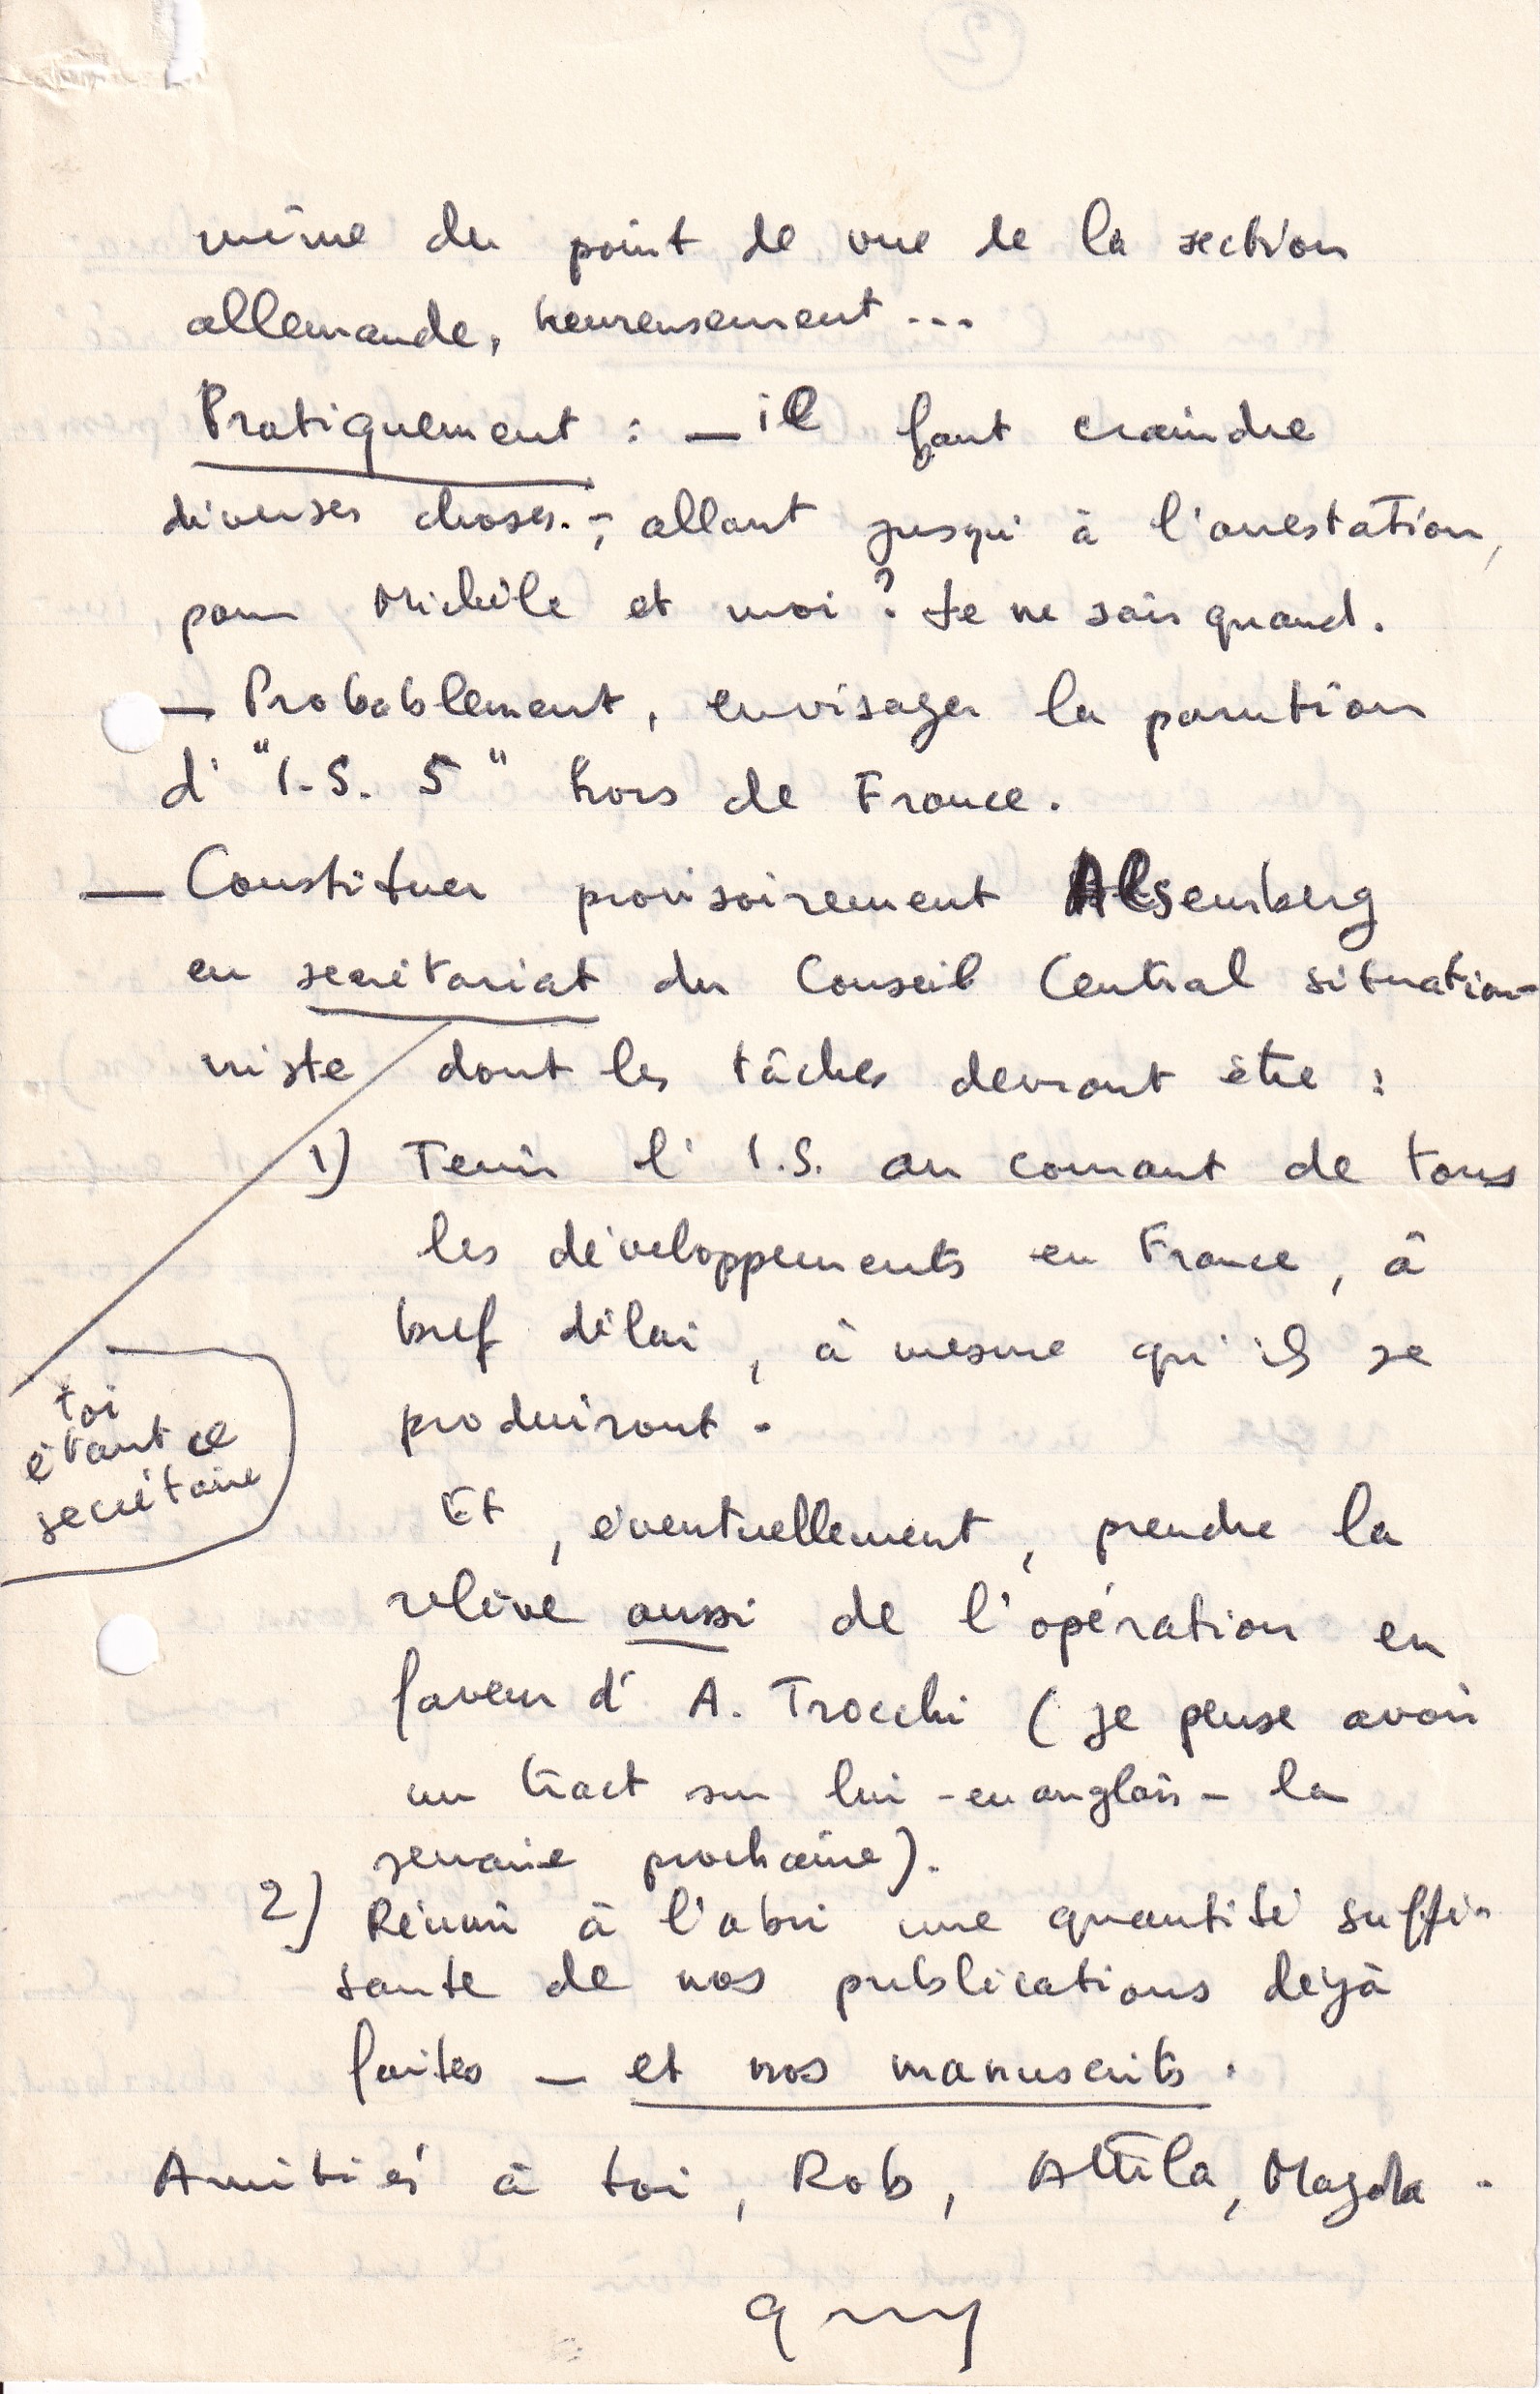 même du point de vue de la section
allemande, heureusement...
Pratiquement : — il faut craindre
diverses choses.-, allant jusqu'à l'arrestation,
pour Michèle et moi ? Je ne sais quand.
— Probablement, envisager la parution
d'"I.S. 5" hors de France.
— Constituer provisoirement Alsemberg
en secrétariat du Conseil Central situation-
niste dont les tâches devront être :
1) Tenir l'I.S. au courant de tous
les développements en France, à
bref délai, à mesure qu'ils se
produiront.
toi
étant ce
secrétaire
Et, éventuellement, prendre la
relève aussi de l'opération en
faveur d'A. Trocchi (je pense avoir
un tract sur lui - en anglais - la
semaine prochaine).
2) Réunir à l'abri une quantité suffi-
sante de nos publications déjà
faites — et nos manuscrits.
Amitiés à toi, Rob, Attila, Magda.
Guy